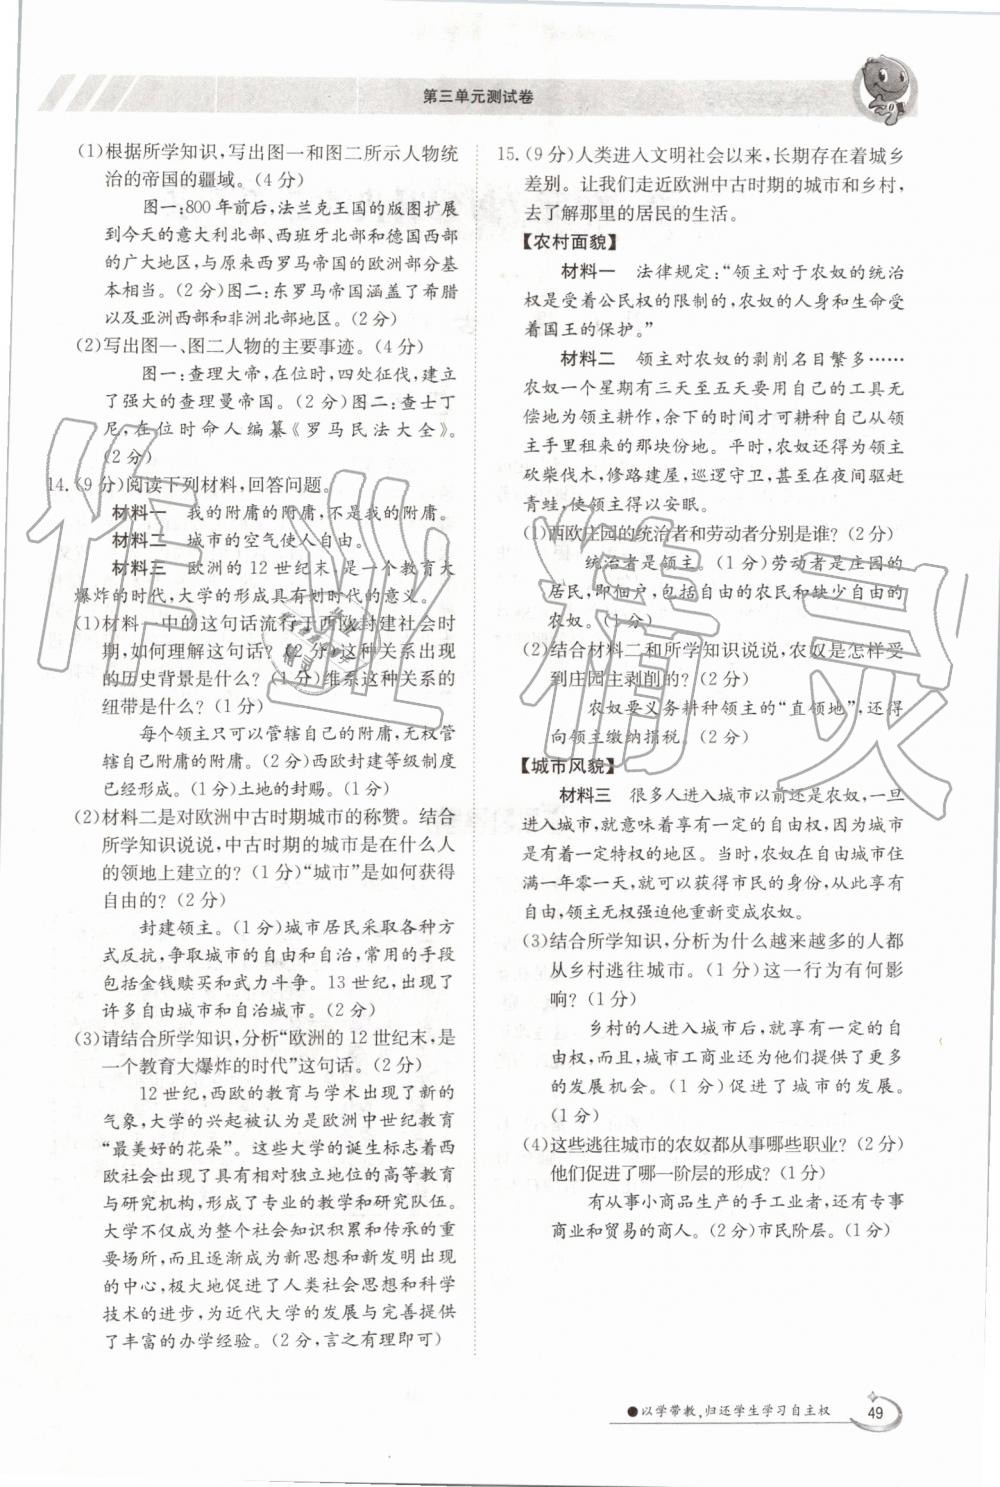 第三单元测试卷
(1)根据所学知识,写出图一和图二所示人物统
治的帝国的疆域。(4分)
图一:800年前后,法兰克王国的版图扩展
到今天的意大利北部、西班牙北部和德国西部
的广大地区,与原来西罗马帝国的欧洲部分基
本相当。(2分)图二:东罗马帝国涵盖了希腊
以及亚洲西部和非洲北部地区。(2分)
(2)写出图一、图二人物的主要事迹。(4分)
图一:查理大帝,在位时,四处征伐,建立
了强大的查理曼帝国。(2分)图二:查士丁
尼,在位时命人编纂《罗马民法大全》。
(2分)
14.(9分)阅读下列材料,回答问题。
材料一 我的附庸的附庸,不是我的附庸。
材料二 城市的空气使人自由。
材料三 欧洲的12世纪末,是一个教育大
爆炸的时代,大学的形成具有划时代的意义。
(1)材料一中的这句话流行于西欧封建社会时
期,如何理解这句话?(2分)这种关系出现
的历史背景是什么?(1分)维系这种关系的
纽带是什么?(1分)
每个领主只可以管辖自己的附庸,无权管
辖附庸的附庸。(2分)西欧封建等级制度
已经形成。(1分)土地的封赐。(1分)
(2)材料二是对欧洲中古时期城市的称赞。结合
所学知识说说,中古时期的城市是在什么人
的领地上建立的?(1分)“城市”是如何获得
自由的?(2分)
封建领主。(1分)城市居民采取各种方
式反抗,争取城市的自由和自治,常用的手段
包括金钱赎买和武力斗争。13世纪,出现了
许多自由城市和自治城市。(2分)
(3)请结合所学知识,分析“欧洲的12世纪末,是
一个教育大爆炸的时代”这句话。(2分)
12世纪,西欧的教育与学术出现了新的
气象,大学的兴起被认为是欧洲中世纪教育
“最美好的花朵”。这些大学的诞生标志着西
欧社会出现了具有相对独立地位的高等教育
与研究机构,形成了专业的教学和研究队伍。
大学不仅成为整个社会知识积累和传承的重
要场所,而且逐渐成为新思想和新发明出现
的中心,极大地促进了人类社会思想和科学
技术的进步,为近代大学的发展与完善提供
了丰富的办学经验。(2分,言之有理即可)
15.(9分)人类进入文明社会以来,长期存在着城乡
差别。让我们走近欧洲中古时期的城市和乡村,
去了解那里的居民的生活。
【农村面貌】
材料一 法律规定:“领主对于农奴的统治
权是受着公民权的限制的,农奴的人身和生命受
着国王的保护。”
材料二 领主对农奴的剥削名目繁多……
农奴一个星期有三天至五天要用自己的工具无
偿地为领主耕作,余下的时间才可耕种自己从领
主手里租来的那块份地。平时,农奴还得为领主
砍柴伐木,修路建屋,巡逻守卫,甚至在夜间驱赶
青蛙,使领主得以安眠。
(1)西欧庄园的统治者和劳动者分别是谁?(2分)
统治者是领主。(1分)劳动者是庄园的
居民,即佃户,包括自由的农民和缺少自由的
农奴。(1分)
(2)结合材料二和所学知识说说,农奴是怎样受
到庄园主剥削的?(2分)
农奴要义务耕种领主的“直领地”,还得
向领主缴纳捐税。(2分)
【城市风貌】
材料三 很多人进入城市以前还是农奴,一旦
进入城市,就意味着享有一定的自由权,因为城市
是有着一定特权的地区。当时,农奴在自由城市住
满一年零一天,就可以获得市民的身份,从此享有
自由,领主无权强迫他重新变成农奴。
(3)结合所学知识,分析为什么越来越多的人都
从乡村逃往城市。(1分)这一行为有何影
响?(1分)
乡村的人进入城市后,就享有一定的自
由权,而且,城市工商业还为他们提供了更多
的发展机会。(1分)促进了城市的发展。
(1分)
(4)这些逃往城市的农奴都从事哪些职业?(2分)
他们促进了哪一阶层的形成?(1分)
有从事小商品生产的手工业者,还有专事
商业和贸易的商人。(2分)市民阶层。(1分)
●以学带教,归还学生学习自主权
49
作业精灵